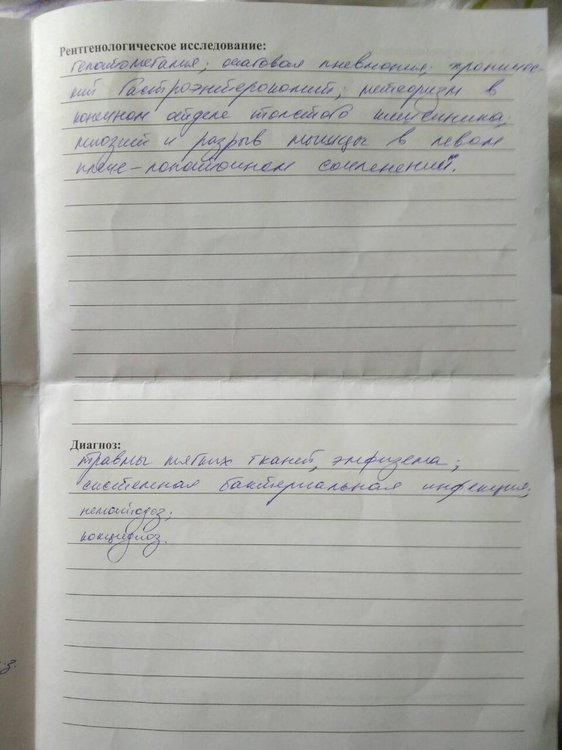 Рентгенологическое исследование:
гепатомегалия; очаговая пневмония; хроничес-
кий гастроэнтероколит; метеоризм в
конечном отделе толстого кишечника;
миозит и разрыв мышцы в левом
плече-лопаточном сочленении.
Диагноз:
травмы мягких тканей, эмфизема;
системная бактериальная инфекция,
нематодоз;
кокцидиоз.
з.